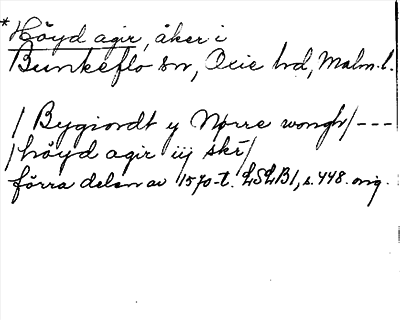 *Höyd agir, åker i
Bunkeflo sn, Oxie hd, Malm. l.
/ Bygiordt y Nørre wongh/ ---
/ höyd agir iij skr/
förra delen av 1570-t. LSLB1, s. 448. orig.